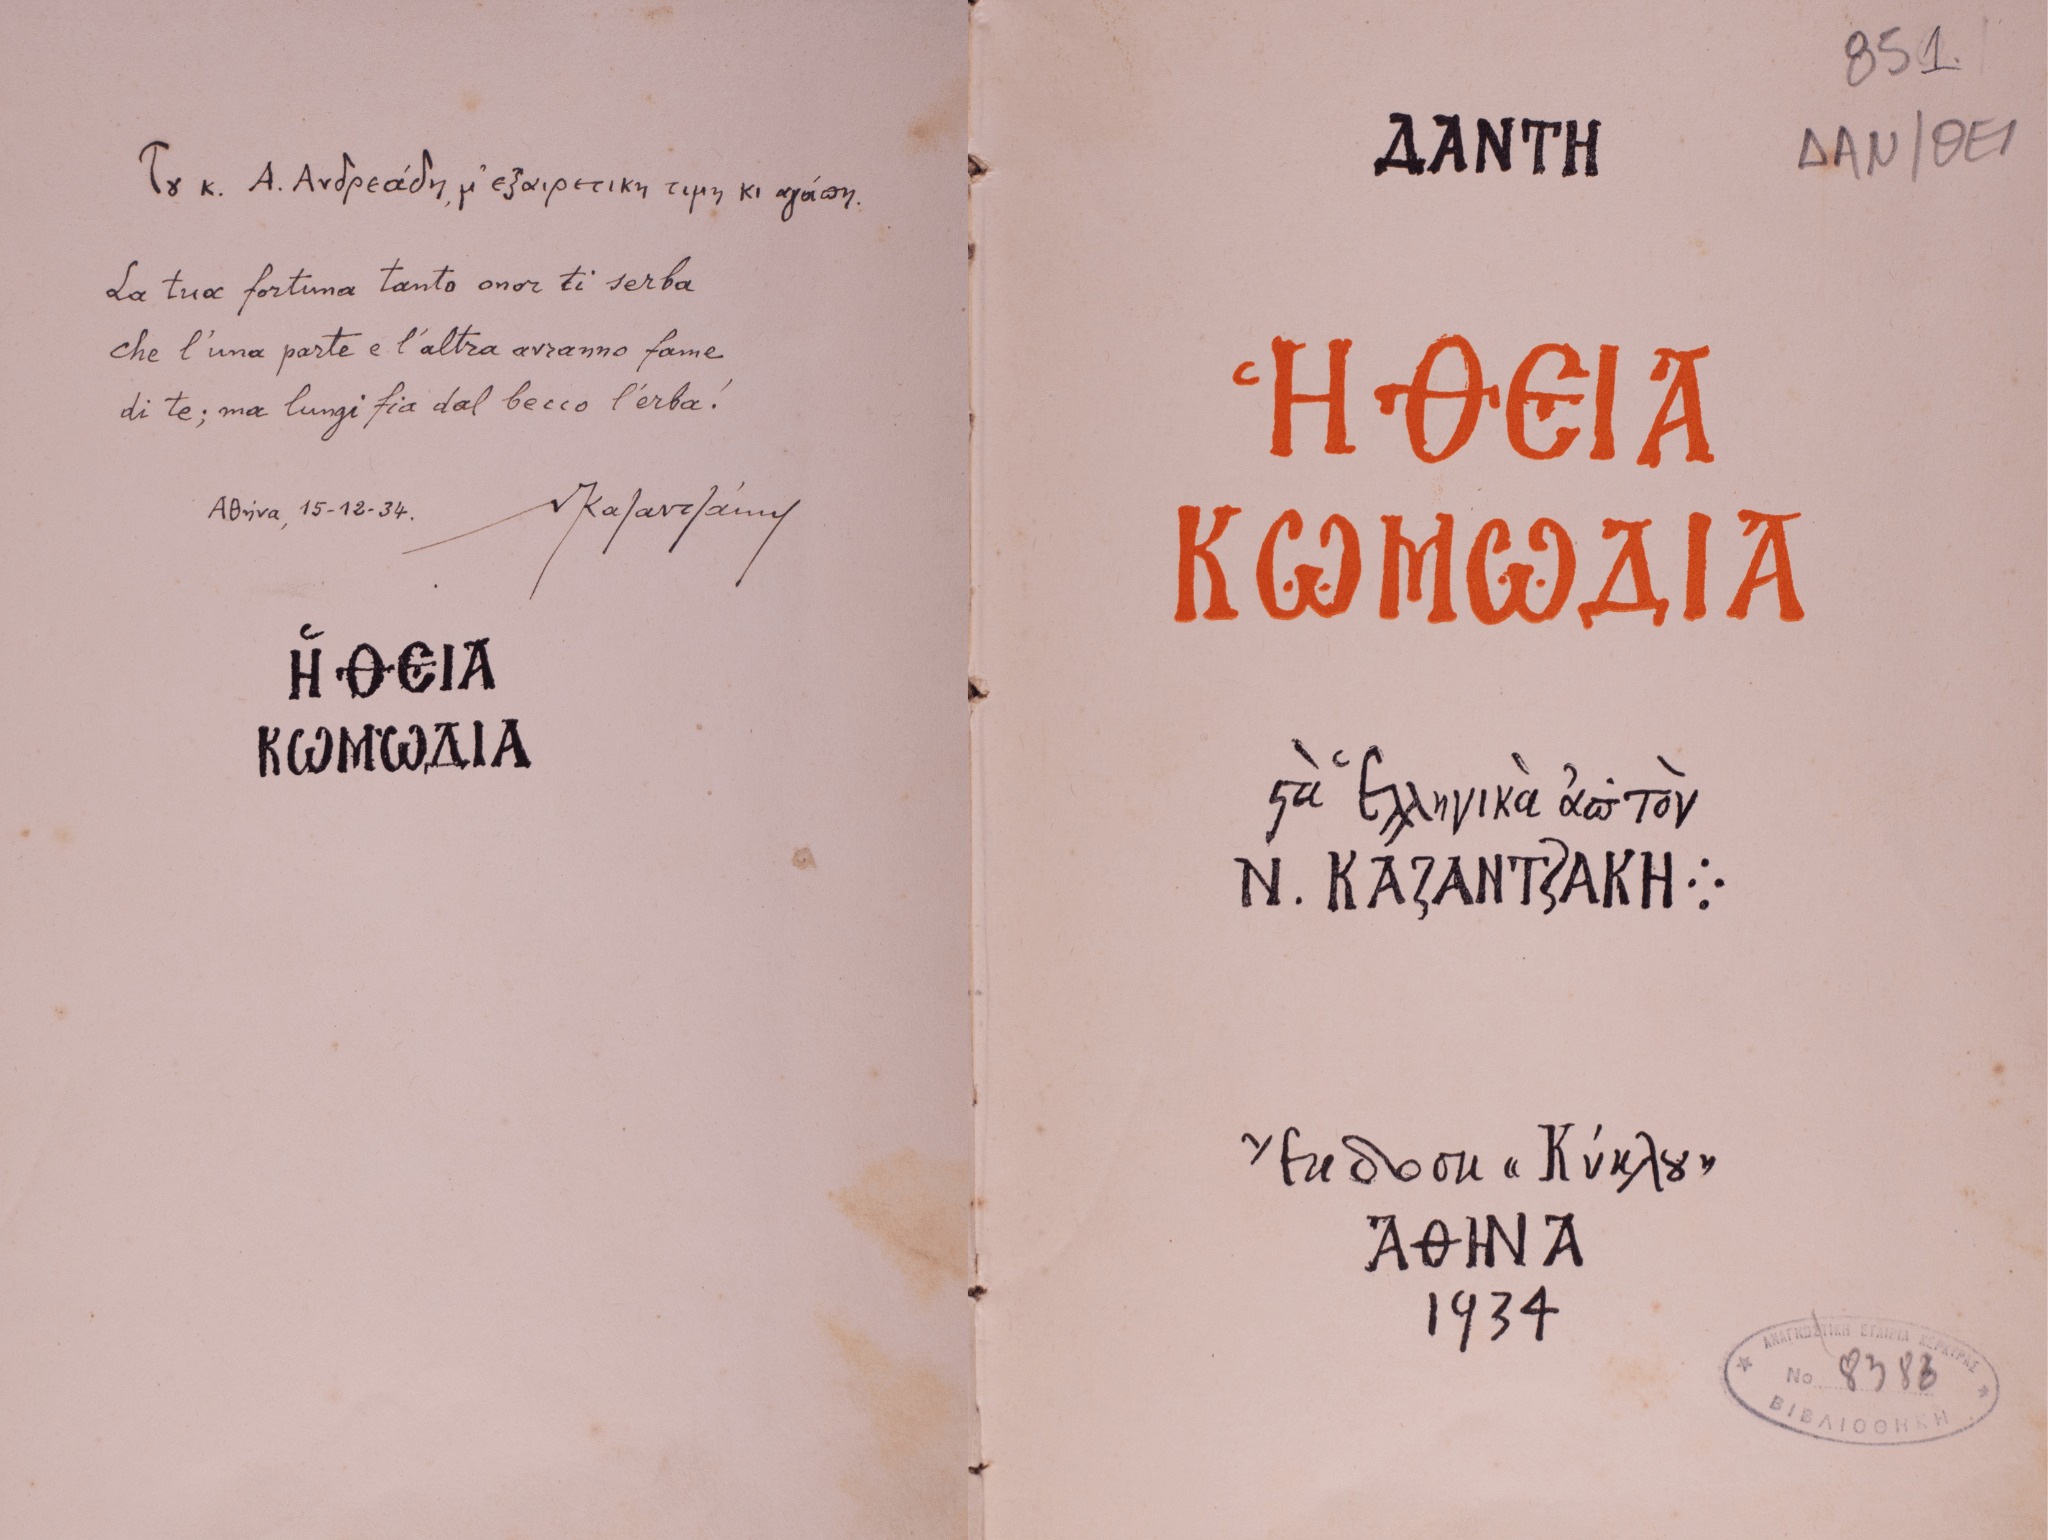 Του κ. Α. Ανδρεάδη, μ' εξαιρετικη τιμη κι αγάπη.
La tua fortuna tanto onor ti serba
che l'una parte e l'altra avranno fame
di te; ma lungi fia dal becco l'erba!
Αθήνα, 15-12-34.
ΝΚαζαντζάκης
Ἡ ΘΕΙΑ
ΚΩΜΩΔΙΑ
851.
ΔΑΝ/ΘΕΙ
ΔΑΝΤΗ
Ἡ ΘΕΙΑ
ΚΩΜΩΔΙΑ
στὰ Ἑλληνικὰ ἀπ' τὸν
Ν. ΚΑΖΑΝΤΖΑΚΗ
Ἔκδοση «Κύκλου»
ΑΘΗΝΑ
1934
ΑΝΑΓΝΩΣΤΙΚΗ ΕΤΑΙΡΙΑ ΚΕΡΚΥΡΑΣ
No 8383
ΒΙΒΛΙΟΘΗΚΗ